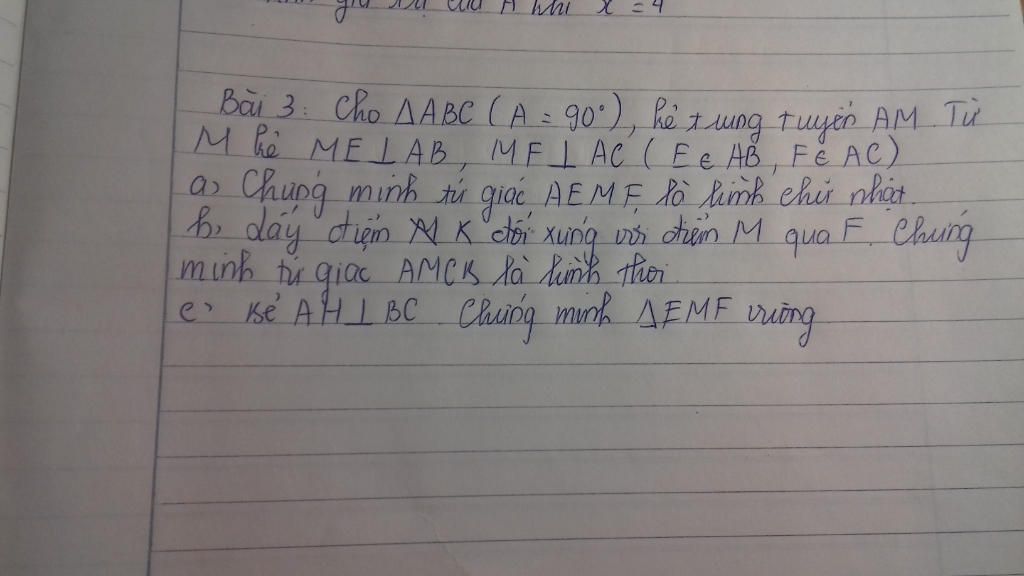 giá trị của A khi x = 4
Bài 3: Cho ΔABC (A = 90°), kẻ trung tuyến AM. Từ
M kẻ ME⊥AB, MF⊥AC (E∈AB, F∈AC)
a, Chứng minh tứ giác AEMF là hình chữ nhật.
b, dấy điểm K đối xứng với điểm M qua F. Chứng
minh tứ giác AMCK là hình thoi
c, Kẻ AH⊥BC. Chứng minh ΔEMF vuông